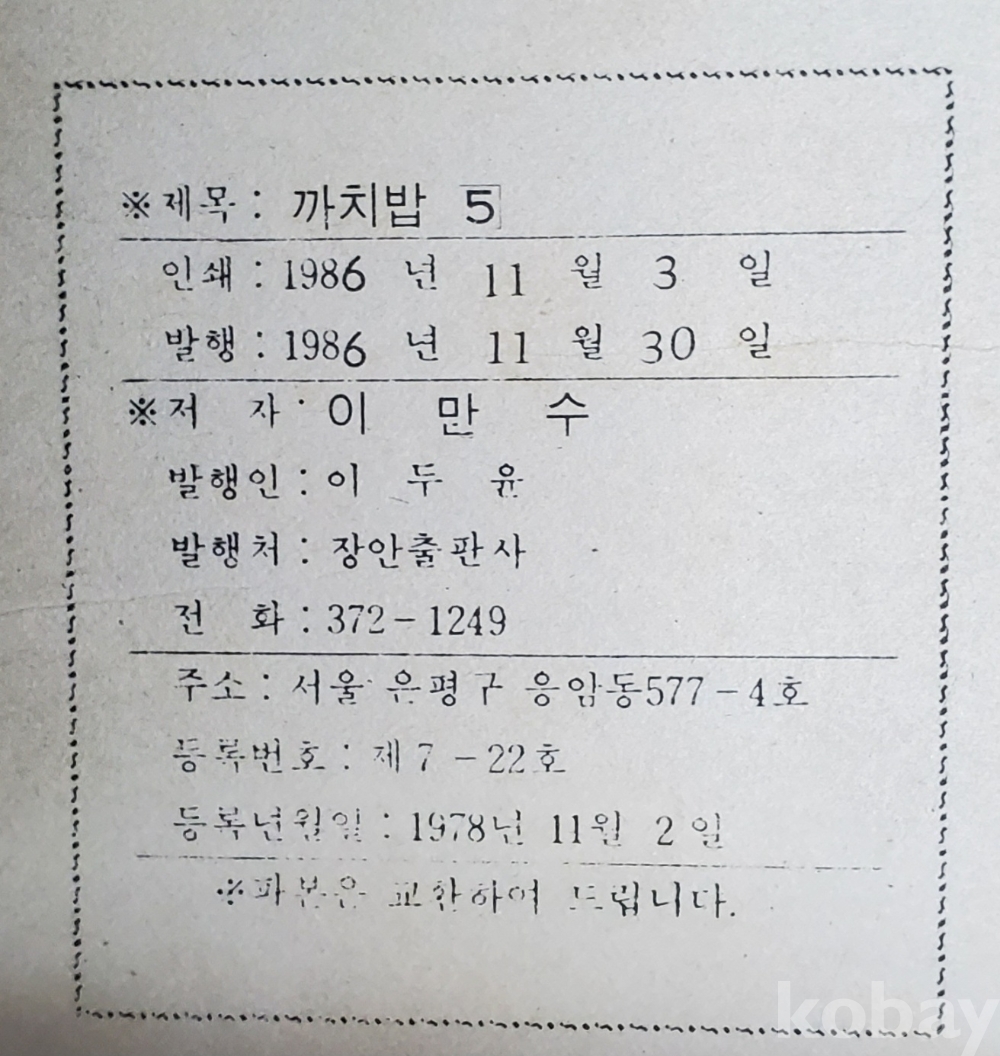 ※제목 : 까치밥 5
인쇄 : 1986 년 11 월 3 일
발행 : 1986 년 11 월 30 일
※저 자 · 이 만 수
발행인 : 이 두 윤
발행처 : 장안출판사
전 화 : 372-1249
주소 : 서울 은평구 응암동577-4호
등록번호 : 제7-22호
등록년월일 : 1978년 11월 2일
※파본은 교환하여 드립니다.
kobay